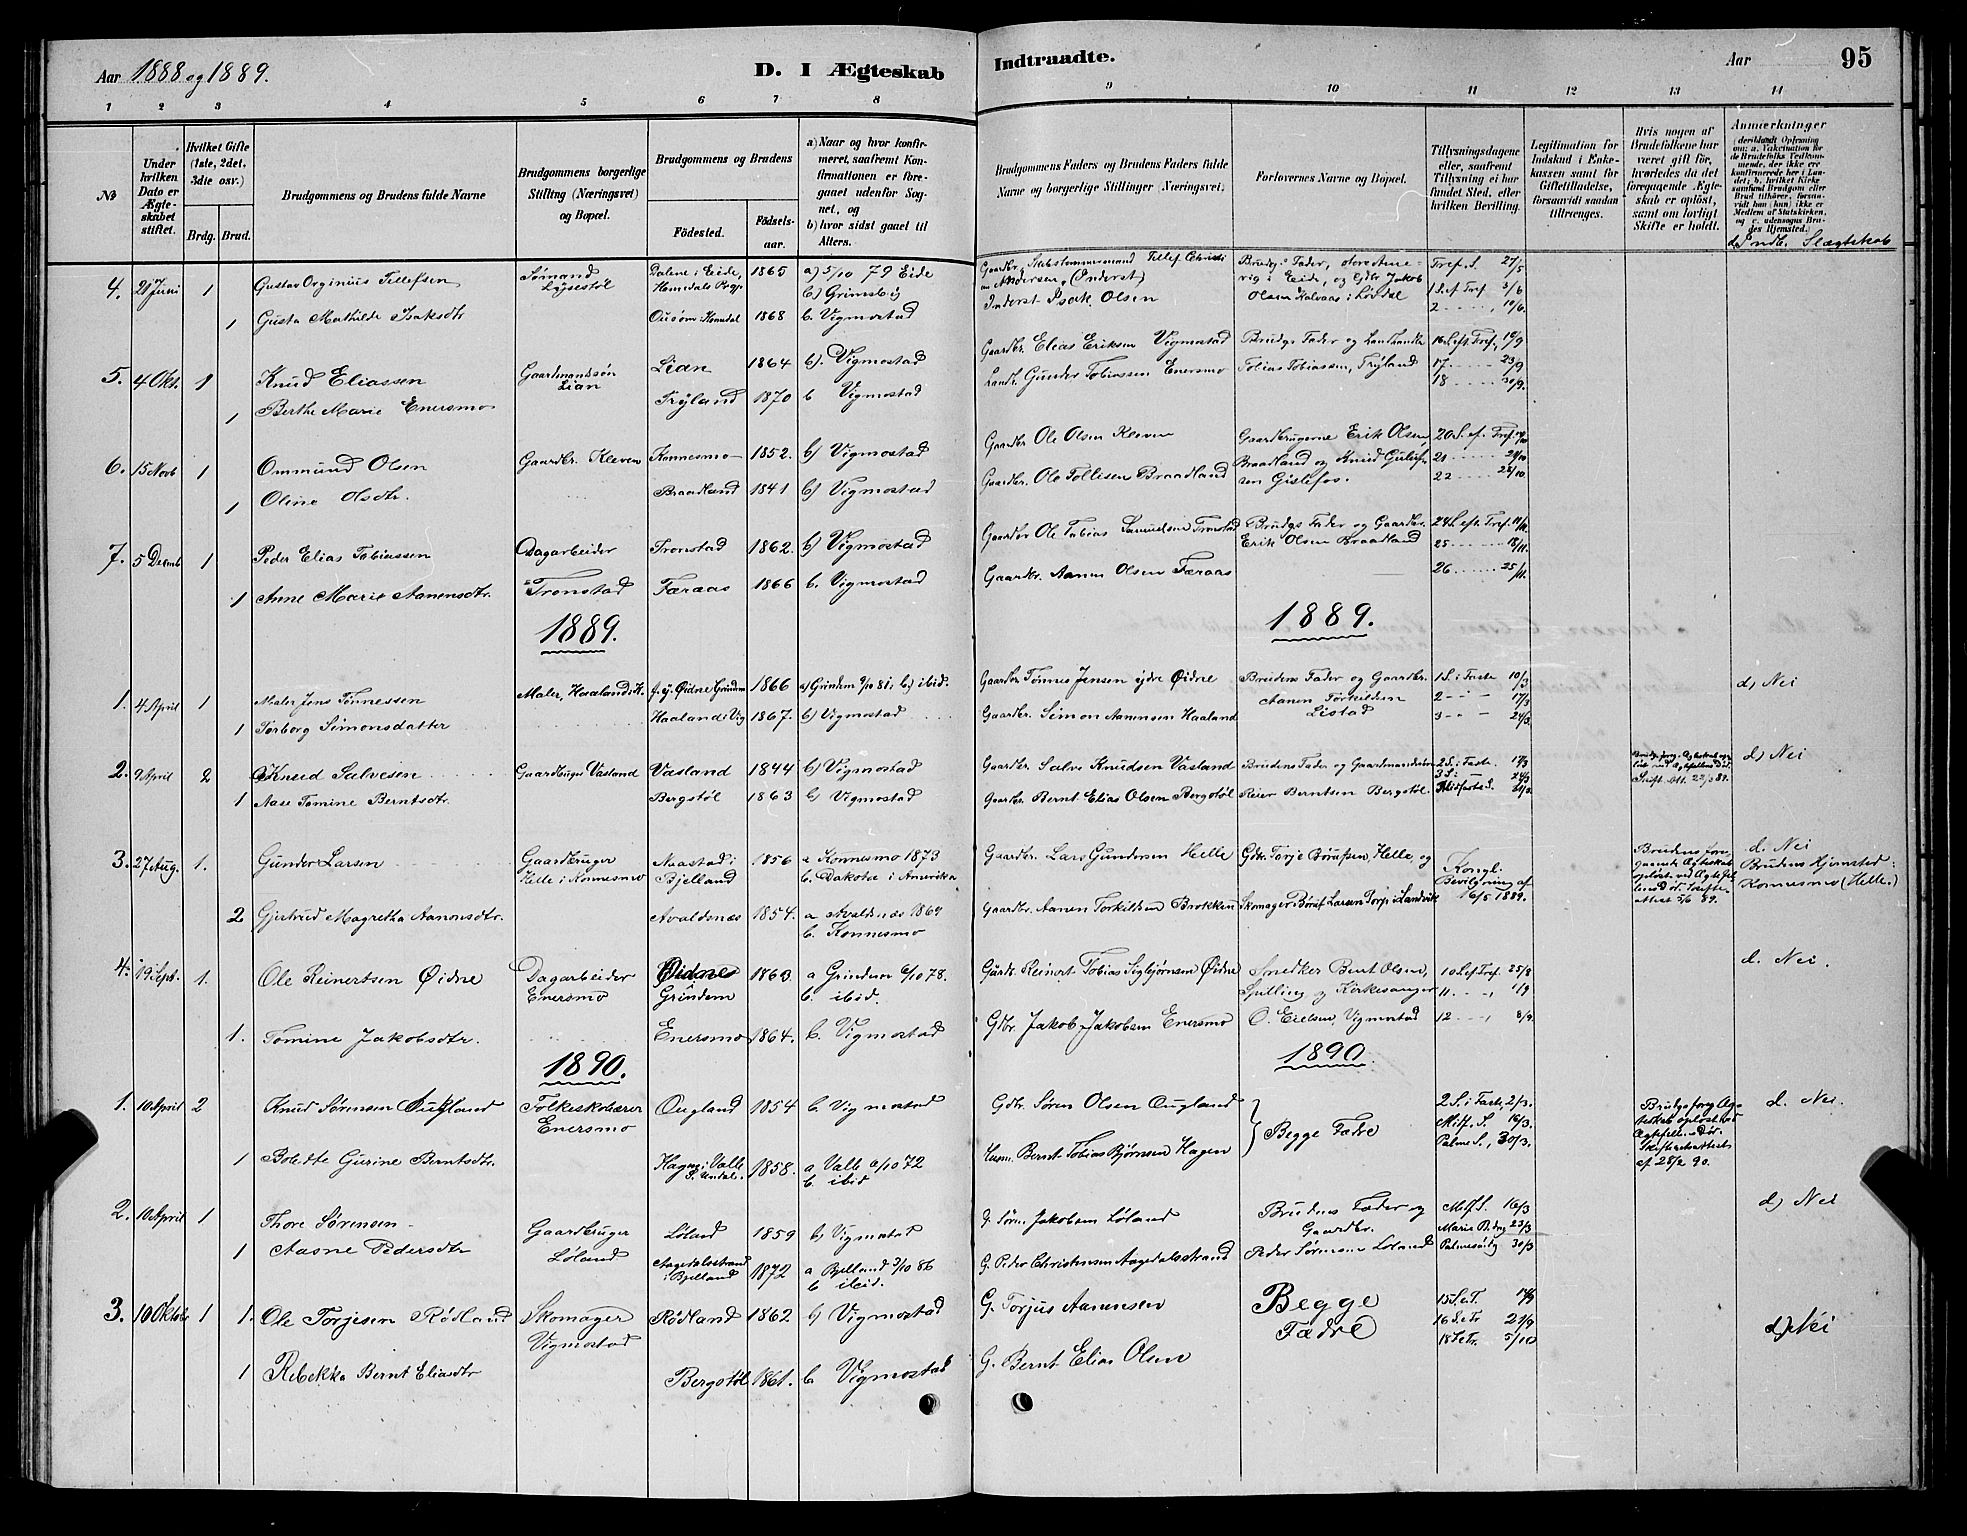 Aar 1888 og 1889.
D. I Ægteskab Indtraadte.
Aar 95
1 2 3 4 5 6 7 8 9 10 11 12 13 14
No
Under hvilken Dato er Ægteskabet stiftet.
Hvilket Gifte (1ste, 2det, 3die osv.)
Brdg. Brud.
Brudgommens og Brudens fulde Navne
Brudgommens borgerlige Stilling (Næringsvei) og Bopæl.
Brudgommens og Brudens
Födested. Födselsaar.
a) Naar og hvor konfirmeret, saafremt Konfirmationen er foregaaet udenfor Sognet, og
b) hvor sidst gaaet til Alters.
Brudgommens Faders og Brudens Faders fulde Navne og borgerlige Stillinger (Næringsvei).
Forlovernes Navne og Bopæl.
Tillysningsdagene eller, saafremt Tillysning ei har fundet Sted, efter hvilken Bevilling.
Legitimation for Indskud i Enkekassen samt for Giftetilladelse, forsaavidt saadan tiltrænges.
Hvis nogen af Brudefolkene har været gift för, hvorledes da det foregaaende Ægteskab er oplöst, samt om lovligt Skifte er holdt.
Anmærkninger
(deriblandt Oplysning om: a. Vakcination for de Brudefolks Vedkommende, der ikke ere konfirmerede her i Landet; b. hvilket Kirkesamfund Brudgom eller Brud tilhörer, forsaavidt han (hun) ikke er Medlem af Statskirken, og c. udensogns Brudes Hjemsted.)
d. Indb. Slægtskab
4. 21 Juni 1 Gustav Orginius Tellefsen Sømand Lysestøl Dalene i Eide, Homedals Prgj. 1865 a) 5/10 79 Eide b) Grimsby
Gaardbr. Andersen (Inderst) Brudg. Fader, i Eide, og Gdbr. Jakob Olsen Kalvaas i Løddal Tref. S. 27/5
1 S. ef Tref 3/6
2 10/6.
1 Gusta Mathilde Isaksdtr 1868 b. Vigmostad Inderst Isak Olsen
5. 4 Okt. 1 Knud Eliassen Gaardmandssøn Lian Lian 1864 b). Vigmostad Gaardbr. Elias Eriksen Vigmostad Brudgs Fader og Tobias Tobiassen, Tryland 16 S. eft. Tref. 16/9
17 23/9
18 30/9.
1 Berthe Marie Enersmo Tryland 1870 b Vigmostad Gunder Tobiassen Enersmo
6. 15 Novb 1 Ommund Olsen Gaardbr. Kleven Konnesmo 1852. b) Vigmostad Gaardbr Ole Olsen Kleven Gaardbrugerne Erik Olsen, Braadland og Knud Gislefos. 20 S. ef. Tref. 14/10
21 21/10
22 28/10
1 Oline Olsdtr. Braadland 1841 b) Vigmostad Gaardbr. Ole Tollisen Braadland
7. 5 Decmb 1 Peder Elias Tobiassen Dagarbeider Tronstad Tronstad 1862. b) Vigmostad Gaardbr Ole Tobias Samuelsen Tronstad Brudgs Fader og Gaardbr. Erik Olsen Braadland 24 S. eft. Tref. 11/11
25 18/11.
26 25/11.
1 Anne Marie Aanensdtr. Færaas 1866 b. Vigmostad Gaardbr. Aanen Olsen Færaas
1889. 1889.
1. 4 April 1 Maler Jens Tønnessen Maler, Haaland i V. Øidne Grindem 1866 a) Grindem 2/10 81, b) ibid. Gaardbr Tønnes Jensen ydre Øidne Brudens Fader og Gaardbr. Aanen Torkildsen Listad 1 S. i Faste 10/3
2 - " - 17/3
3 - " - 24/3.
d) Nei
1 Torborg Simonsdatter Haaland i Vig 1867. b) Vigmostad Gaardbr. Simon Aanensen Haaland
2. 9 April 2 Knud Salvesen Gaardbruger Vasland Vasland 1844 b) Vigmostad Gaardbr. Salve Knudsen Vasland Brudens Fader og Gaardmandssøn Reier Berntsen Bergstøl. 2 S. i Faste. 17/3
3 S. i 24/3
Midfaste S. 31/3
Skift. Att. 22/3 89. d) Nei
1 Aase Tomine Berntsdtr. Bergstøl 1863 b) Vigmostad Gaardbr. Bernt Elias Olsen Bergstøl
3. 27 Aug. 1. Gunder Larsen Gaardbruger Helle i Konnesmo Naastad i Bjelland 1856 a Konnesmo 1873 b. Dakota i Amerika Gaardbr. Lars Gundersen Helle Gdbr. Torje Børufsen, Helle, og Skomager Børuf Larsen Torp i Landvik Kongl. Bevilgning af 16/5 1889.
Brudens foregaaende Ægteskab opløst ved Ægtefellens Død. Skifteattest 5/6 89. d. Nei Brudens Hjemsted: Konnesmo (Helle.)
2 Gjertrud Magretha Aanensdtr. Avaldsnes 1854. a Avaldsnæs 1869 b. Konnesmo Gaardbr. Aanen Torkildsen Brokken
4. 19 Sept. 1. Ole Reinertsen Øidne Dagarbeider Enersmo Øidne Grindem 1863. a Grindem 6/10 78. b. ibid. Gårdb. Reinert Tobias Sigbjørnsen Øidne Snedker Bent Olsen, Spilling og Kirkesanger O. Eielsen, Vigmostad 10 S. ef Tref. 25/8
11. 1/9
12 8/9.
d. Nei.
1. Tomine Jakobsdtr. Enersmo 1864. b. Vigmostad Gdbr. Jakob Jakobsen Enersmo
1890. 1890.
1. 10 April 2 Knud Sørensen Augland Folkeskolærer Enersmo Ougland 1854 b. Vigmostad Gdbr. Søren Olsen Ougland Begge Fædre 2 S. i Fast. 2/3.
Midf. S. 16/3.
Palme S., 30/3.
Brudgs forg Ægteskab opløst ved Ægtefell. s Død. Skifteretsattest af 28/2 90. d. Nei.
1 Boledte Gusine Berntsdtr. Hagen i Valle S. Undal. 1858. a Valle 6/10 72 b. ibid Husm. Bernt Tobias Bjørnsen Hagen
2. 10 April 1 Thore Sørensen Gaardbruger Løland Løland 1859 b) Vigmostad G. Søren Jakobsen Løland Brudens Fader og Gaardbr. Peder Sørensen Løland Midf. S. 16/3
Marie B.dag 23/3
Palmesøndg 30/3
d) Nei
1 Aasne Pedersdtr Aagedalsstrand i Bjelland 1872 a Bjelland 3/10 86 b. ibid. G. Peder Christensen Aagedalsstrand
3. 10 Oktobr 1 1. Ole Torjesen Rødland Skomager Vigmostad Rødland 1862 b) Vigmostad G. Torjus Aanensen Begge Fædre 15 S. e. T. 14/9
16 S. e Tr 21/9
18 S. e Tr. 5/10
d) Nei
1 Rebekka Bernt Eliasdtr Bergstøl 1861. b Vigmostad G. Bernt Elias Olsen